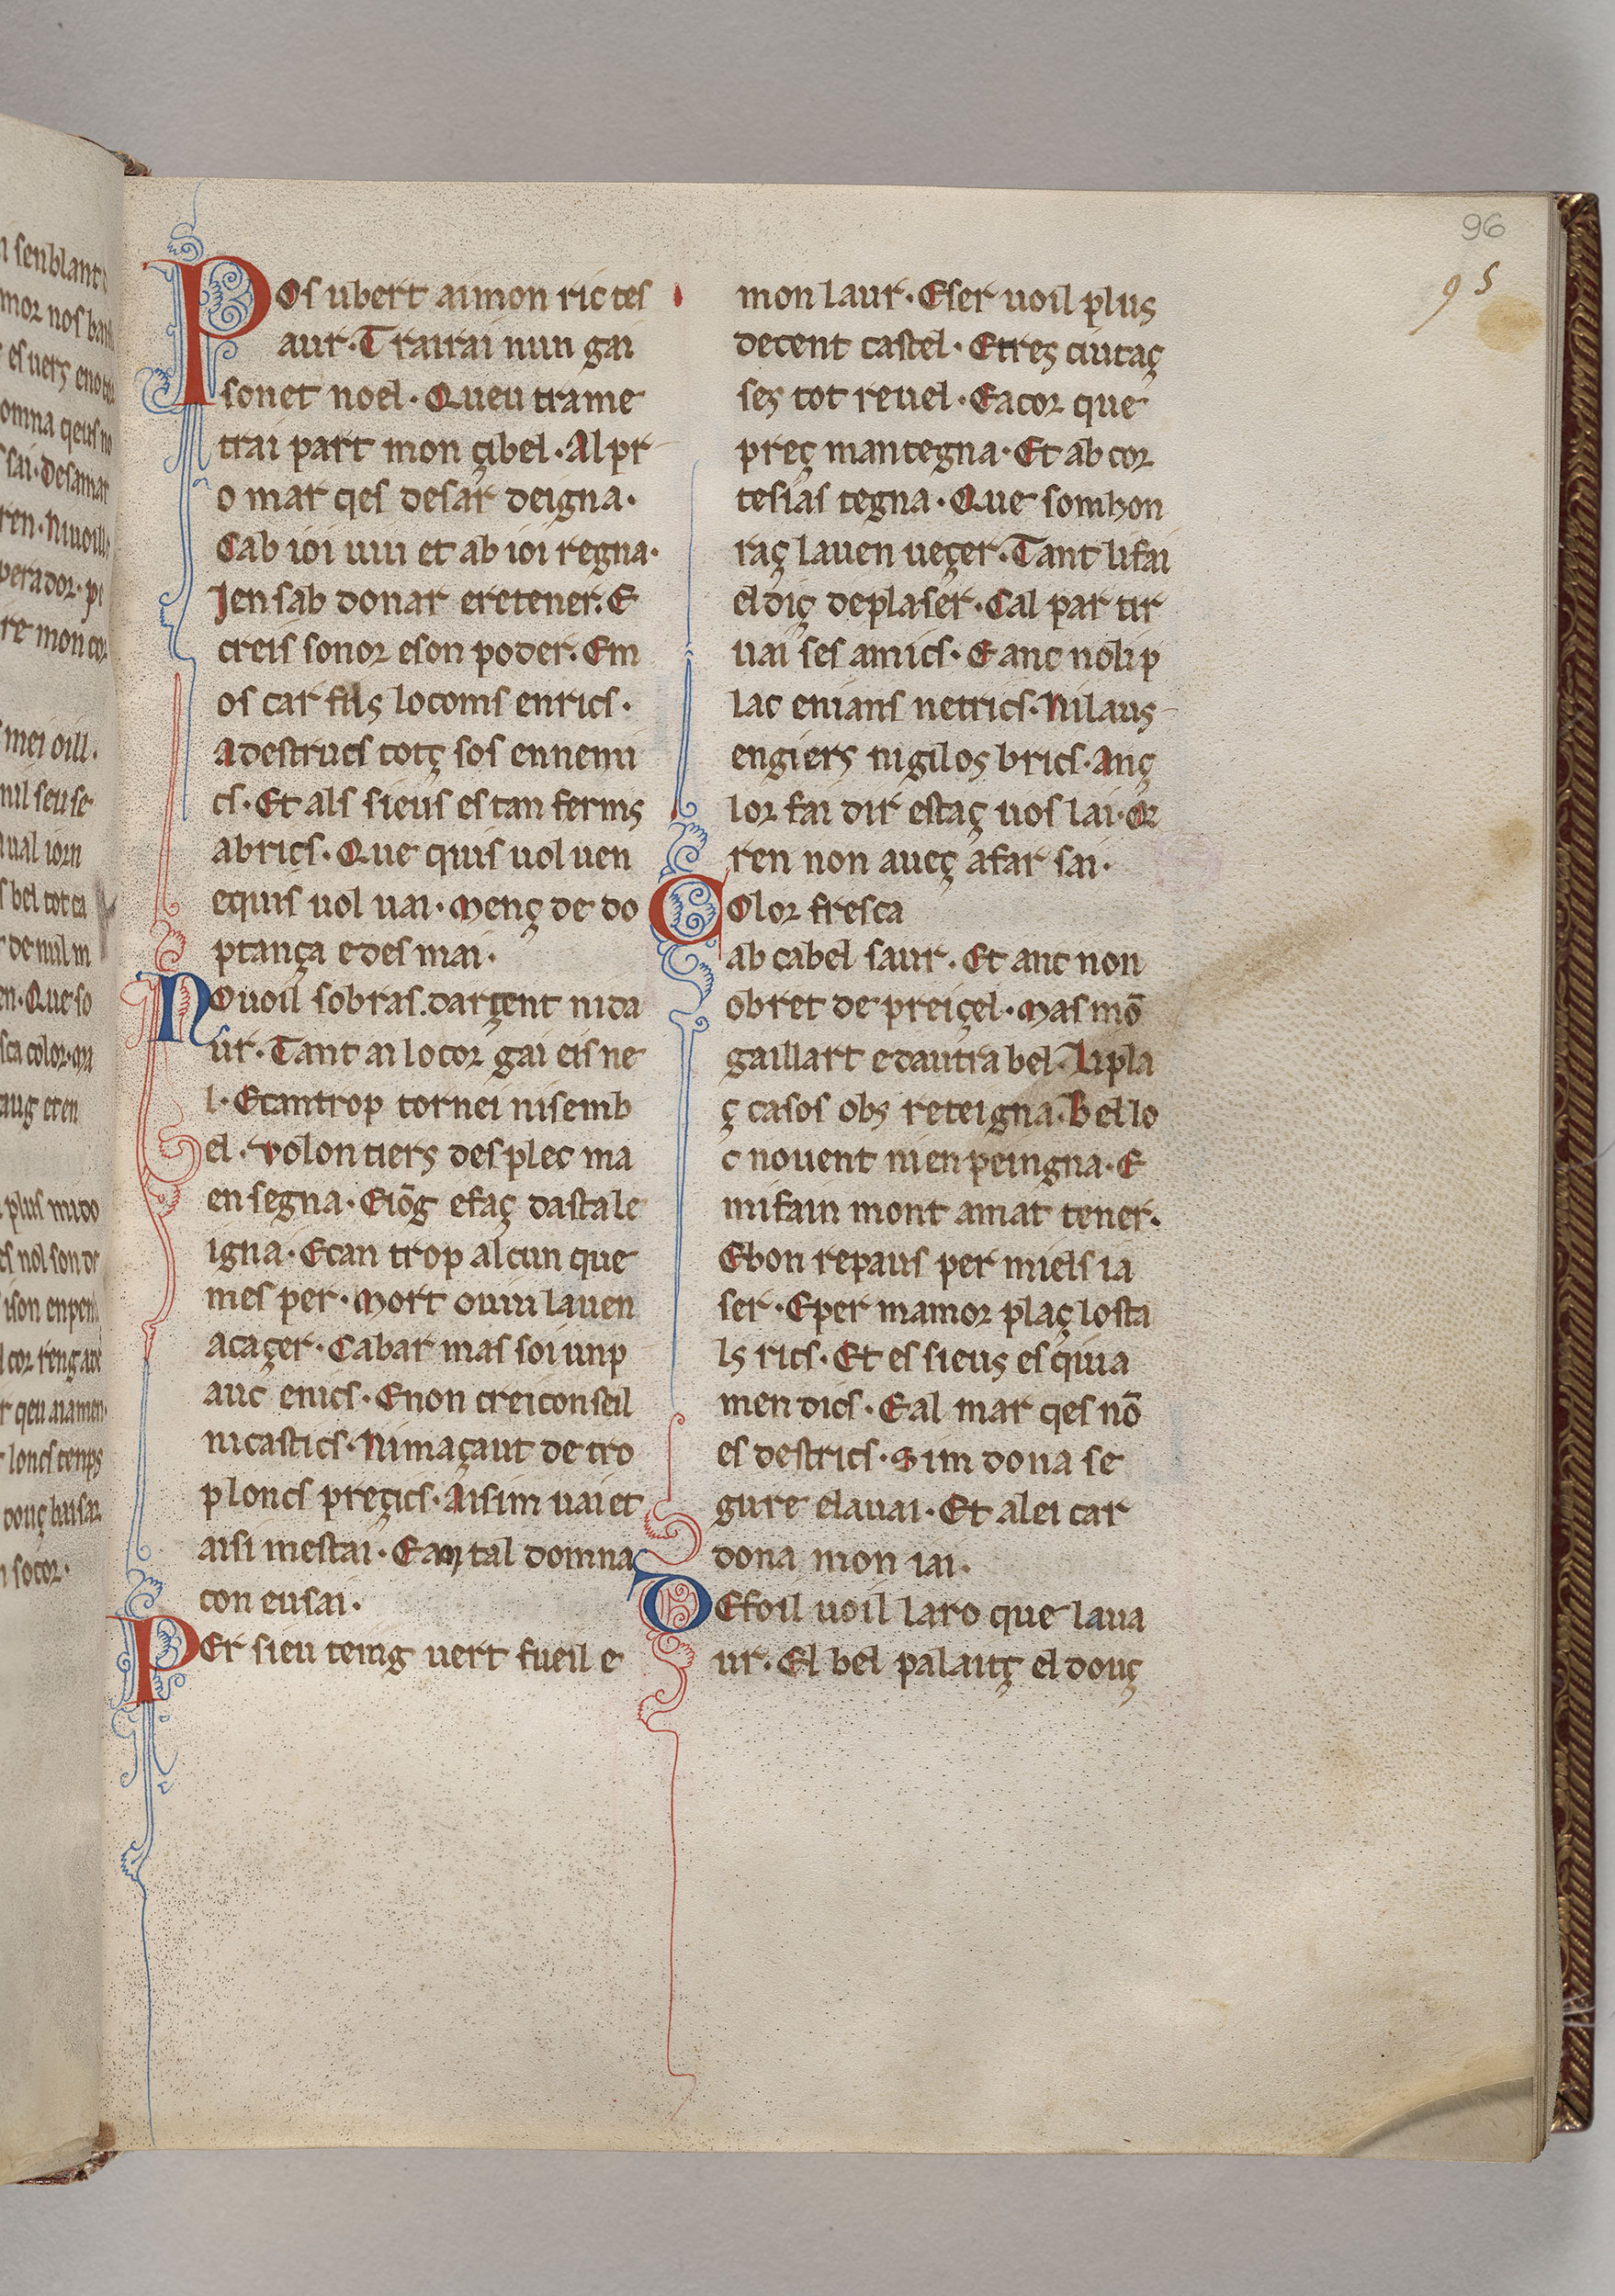 96
95
Pos ubert ai mon ric tes
aur. Trairai nun gai
sonet noel. Queu trame
trai part mon çibel. Al pr
o mar qes desar deigna.
Cab ioi uiu et ab ioi regna.
Ien sab donar e retener. E
creis sonor e son poder. Em
os car fils lo coms enrics.
A destrucs totç sos ennemi
cs. Et als sieus es tan ferms
abrics. Que quis uol uen
equis uol uai. Menç de do
ptança e des mai.
No uoil sobras. dargent ni da
ur. Tant ai lo cor gai eis ne
l. E can trop tornei ni semb
el. Volontiers des plec ma
en segna. E iōg e faç dastale
igna. E can trop alcun que
mes per. Mort o uiu lauen
a caçer. Cabar mas soi un p
auc enics. E non crei conseil
ni castics. Ni maçaut de tro
p loncs preçics. Aisim uai et
aisi mestai. E am tal domna
con eu sai.
Per sieu teing uert fueil e
mon laur. E ser uoil plus
de cent castel. E trez ciutaç
sez tot reuel. E a cor que
preç mantegna. Et ab cor
tesias tegna. Que som hon
raç lauen ueçer. Tant li fai
el diç de plaser. Cal par tir
uai ses amics. E anc no li p
lac enians ne trics. Ni laus
engiers ni gilos brics. Anç
lor fai dir estaç uos lai. Qr
ren non aueç a far sai.
Color fresca
ab cabel saur. Et anc non
obret de preiçel. Mas mō
gaillart e dautra bel. Li pla
ç ca sos obs reteigna. Bel lo
c nouent ni enpeingna. E
mi fain mont amat tener.
E bon repaus per miels ia
ser. E per mamor plaç losta
ls rics. Et es sieus es qui a
men dics. E al mar qes nō
es destrics. Sim dona se
gure e lauai. Et a lei car
dona mon iai.
De foil uoil laro que laua
ur. El bel palauç el douç